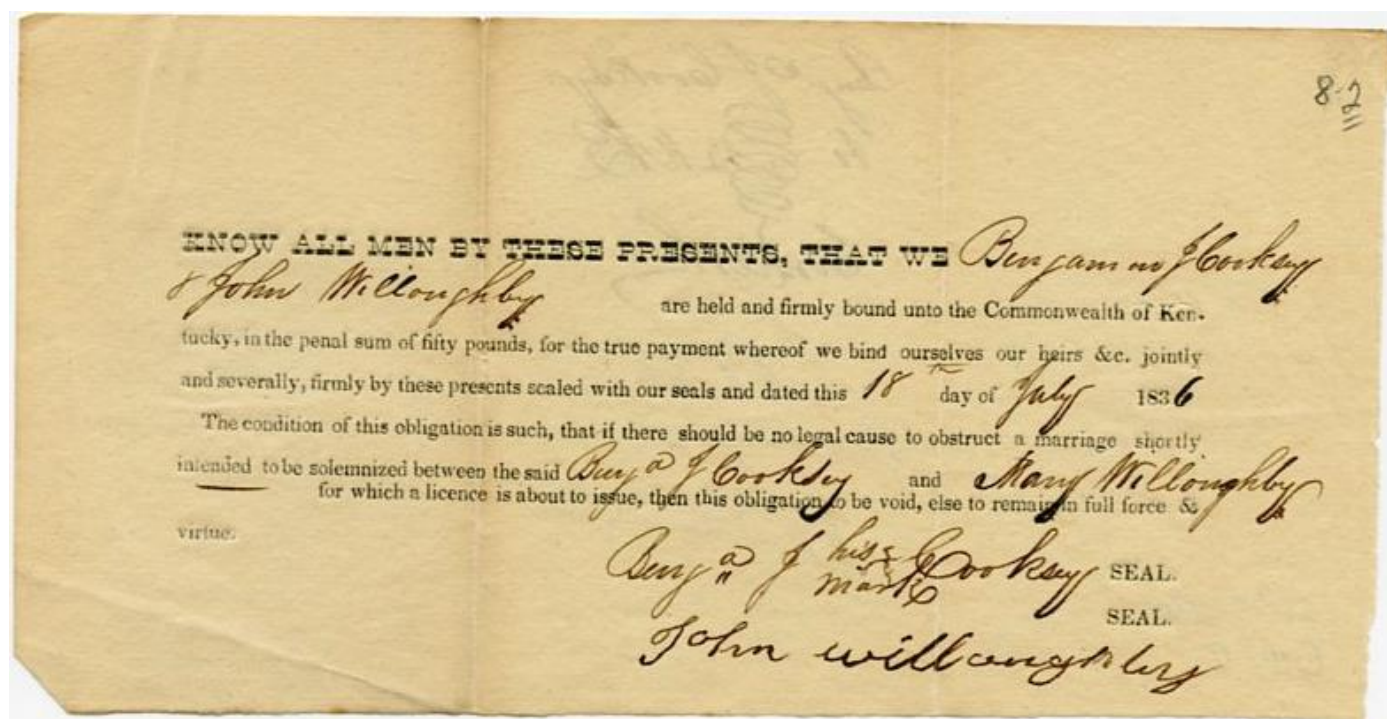 8-2
KNOW ALL MEN BY THESE PRESENTS, THAT WE Benjamin J Cooksey
& John Willoughby are held and firmly bound unto the Commonwealth of Ken-
tucky, in the penal sum of fifty pounds, for the true payment whereof we bind ourselves our heirs &c. jointly
and severally, firmly by these presents sealed with our seals and dated this 18th day of July 1836
The condition of this obligation is such, that if there should be no legal cause to obstruct a marriage shortly
intended to be solemnized between the said Benja J Cooksey and Mary Willoughby
for which a licence is about to issue, then this obligation to be void, else to remain in full force &
virtue.
Benja J his mark Cooksey SEAL.
SEAL.
John willoughby